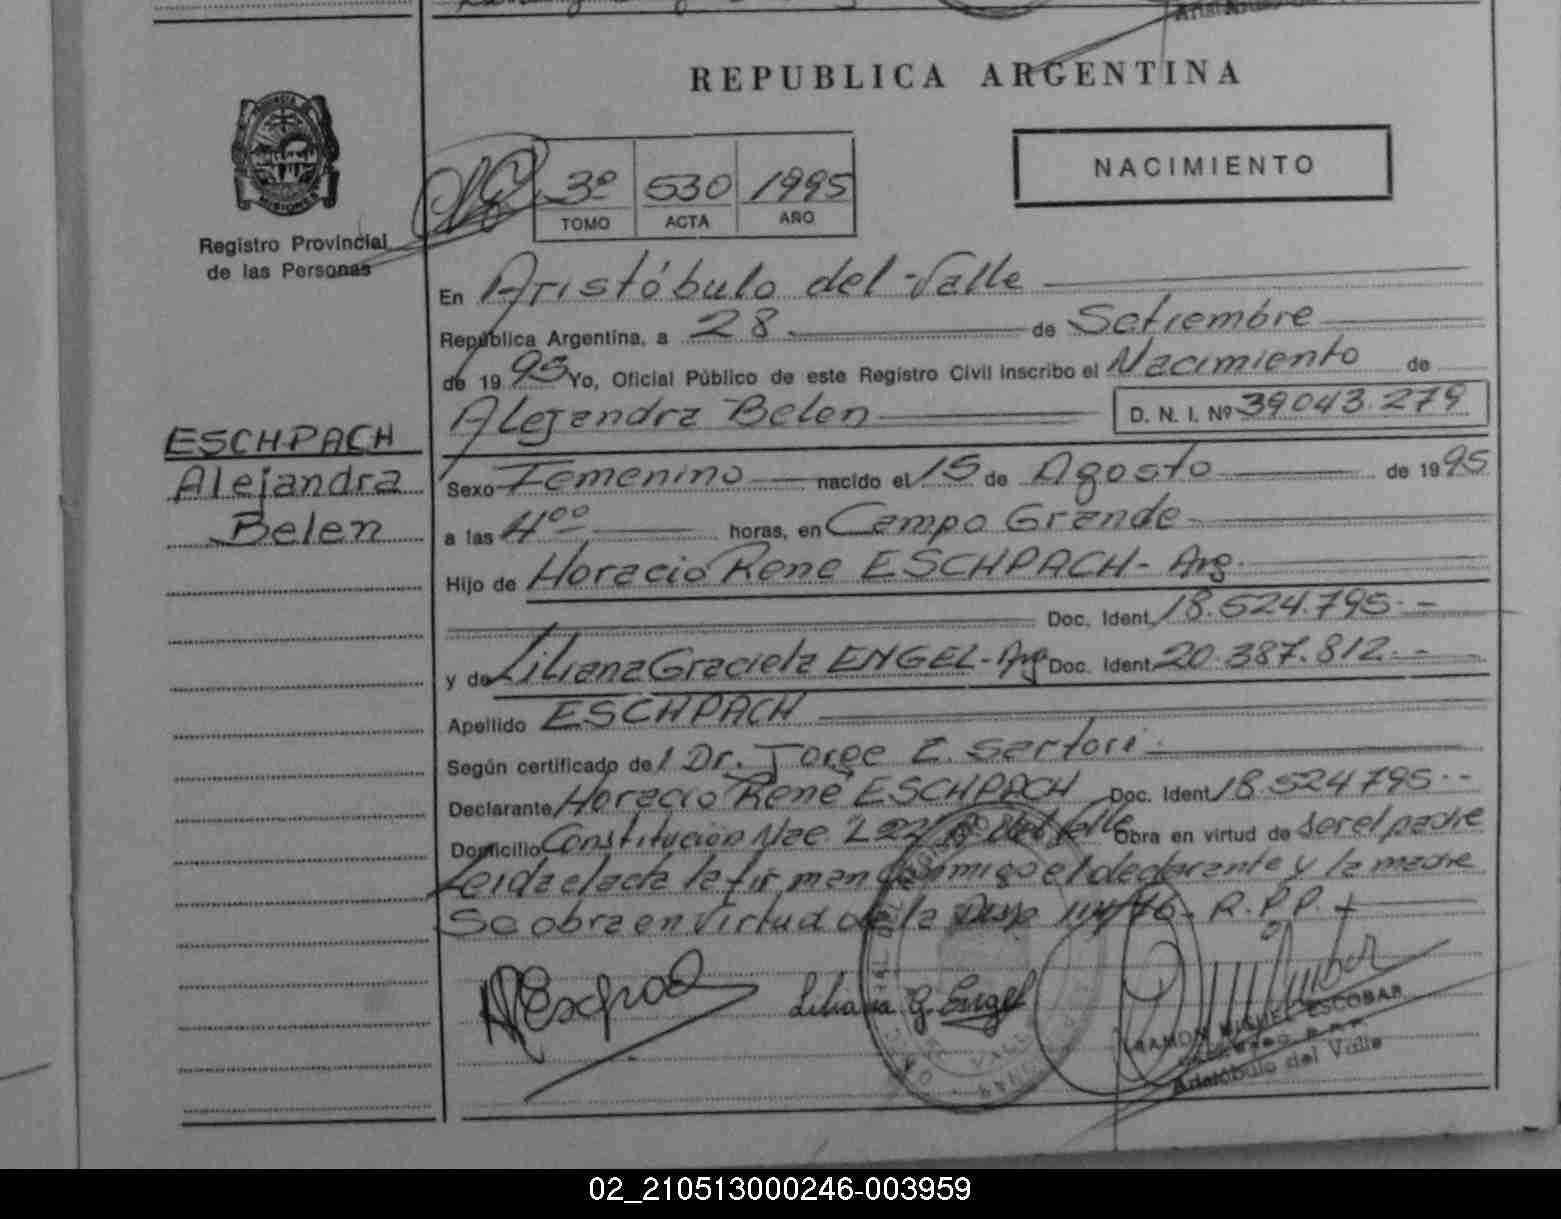 REPUBLICA ARGENTINA
PROVINCIA DE
MISIONES
Registro Provincial
de las Personas
NACIMIENTO
3º 530 1995
TOMO ACTA AÑO
En Aristóbulo del Valle
República Argentina, a 28 de Setiembre
de 19 95 Yo, Oficial Público de este Registro Civil inscribo el Nacimiento de
Alejandra Belen D. N. I. Nº 39.043.279
ESCHPACH
Alejandra
Belen
Sexo Femenino nacido el 15 de Agosto de 19 95
a las 4ºº horas, en Campo Grande
Hijo de Horacio Rene ESCHPACH - Arg.
Doc. Ident. 18.524.795.-
y de Liliana Graciela ENGEL - Arg Doc. Ident. 20.387.812.-
Apellido ESCHPACH
Según certificado del Dr. Jorge E. Sartori.
Declarante Horacio René ESCHPACH Doc. Ident. 18.524795.-
Domicilio Constitución Nac del Valle Obra en virtud de ser el padre
Leida el acta la firman conmigo el declarante y la madre
Se obra en virtud de la Disp R.P.P.
Liliana G. Engel
RAMON MIGUEL ESCOBAR
Aristóbulo del Valle
02_210513000246-003959